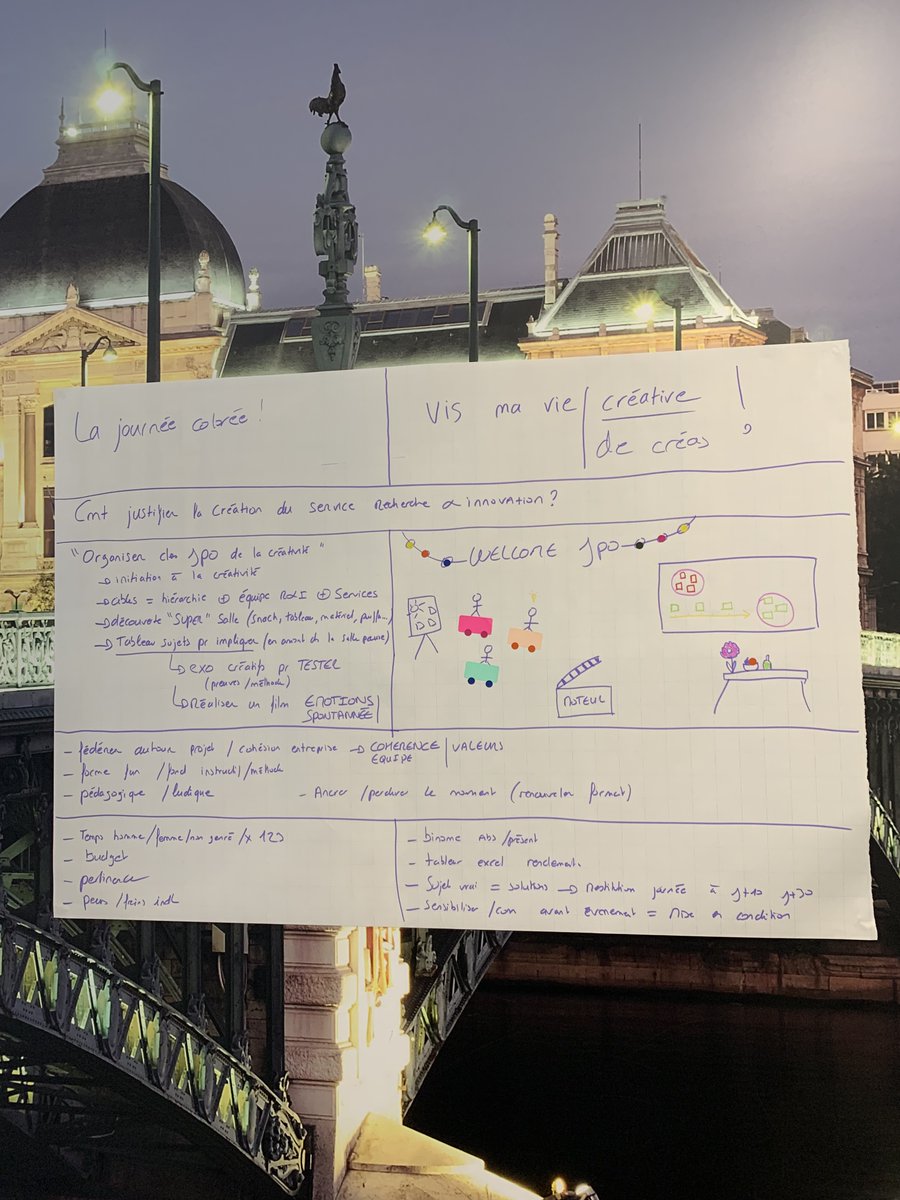 La journée colorée !
Vis ma vie créative !
de créas ?
Cmt justifier la création du service Recherche & innovation ?
"Organiser des JPO de la créativité"
→ initiation à la créativité
→ cibles = hiérarchie ⊕ équipe R&I ⊕ Services
→ découverte "Super" Salle (snack, tableau, matériel,
→ Tableau sujets pr impliquer (en amont ds la salle pause)
→ exo créatifs pr TESTER
(preuves/méthode)
→ Réaliser un film EMOTIONS
SPONTANNÉE
WELCOME JPO
MOTEUR
- fédérer autour projet / cohésion entreprise → COHERENCE | VALEURS
EQUIPE
- forme fun / fond instructif/méthode
- pédagogique / ludique
- Ancrer / perdurer le moment (renouveler format)
- Temps homme/femme/non genré /x 123
- budget
- pertinence
- peurs / freins indiv
- binome Abs/présent
- tableau excel rendement.
- Sujet vrai = solutions → Restitution journée à J+10 J+30
- Sensibiliser /com avant évènement = Mise en condition